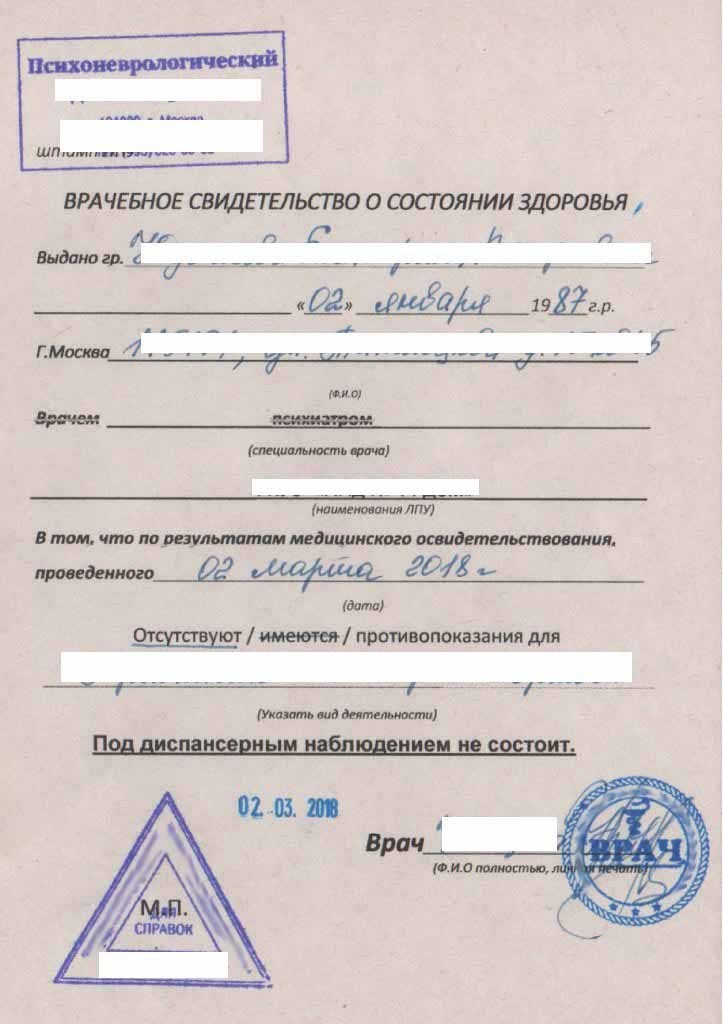 Психоневрологический
г. Москва
ВРАЧЕБНОЕ СВИДЕТЕЛЬСТВО О СОСТОЯНИИ ЗДОРОВЬЯ
Выдано гр.
«02» января 1987 г.р.
Г.Москва
(Ф.И.О)
Врачем психиатром
(специальность врача)
(наименования ЛПУ)
В том, что по результатам медицинского освидетельствования,
проведенного 02 марта 2018 г
(дата)
Отсутствуют / имеются / противопоказания для
(Указать вид деятельности)
Под диспансерным наблюдением не состоит.
02. 03. 2018
Врач
ВРАЧ
(Ф.И.О полностью, личная печать)
М.П.
ДЛЯ
СПРАВОК